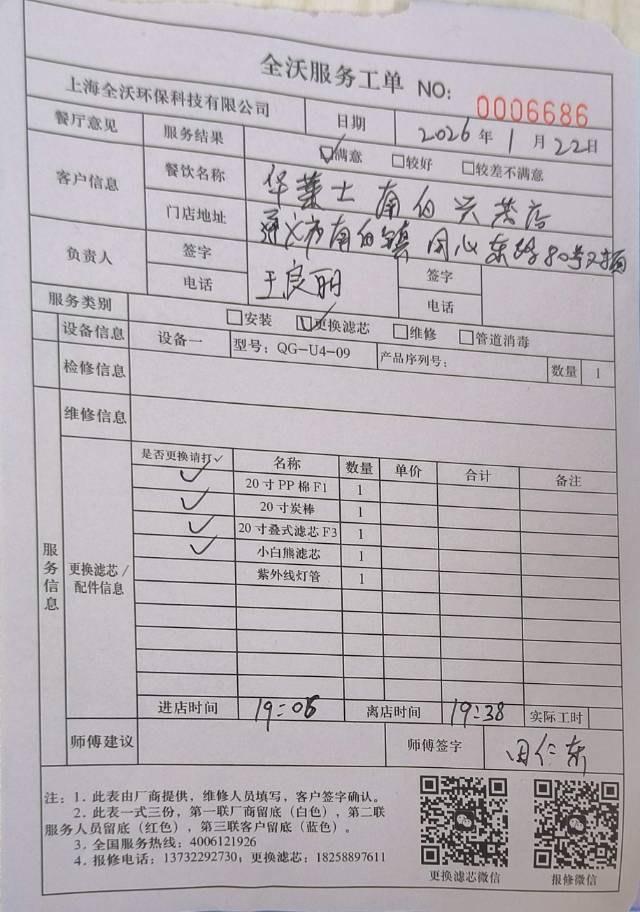 全沃服务工单 NO: 0006686
上海全沃环保科技有限公司 日期 2026年1月22日
餐厅意见 服务结果 ☑满意 □较好 □较差不满意
客户信息 餐饮名称 华莱士南白兴茶店
门店地址 遵义市南白镇同心东路80号对面
负责人 签字 王良丽 签字
电话 电话
服务类别 □安装 ☑更换滤芯 □维修 □管道消毒
设备信息 设备一 型号：QG-U4-09 产品序列号： 数量 1
检修信息
维修信息
服务信息
更换滤芯/配件信息
是否更换请打✓ 名称 数量 单价 合计 备注
✓ 20寸PP棉F1 1
✓ 20寸炭棒 1
✓ 20寸叠式滤芯F3 1
✓ 小白熊滤芯 1
紫外线灯管 1
进店时间 19:06 离店时间 19:38 实际工时
师傅建议 师傅签字 田仁东
注：1．此表由厂商提供，维修人员填写，客户签字确认。
2．此表一式三份，第一联厂商留底（白色），第二联
服务人员留底（红色），第三联客户留底（蓝色）。
3．全国服务热线：4006121926
4．报修电话：13732292730；更换滤芯：18258897611
更换滤芯微信 报修微信